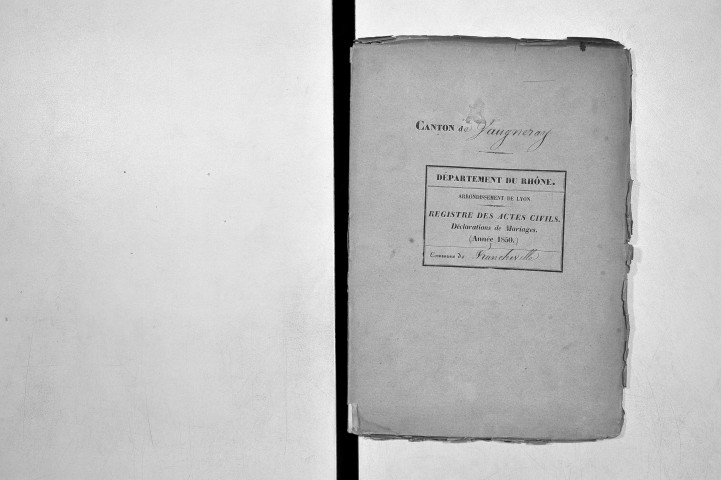 CANTON de Vaugneray
DÉPARTEMENT DU RHÔNE.
ARRONDISSEMENT DE LYON.
REGISTRE DES ACTES CIVILS.
Déclarations de Mariages.
(Année 1850.)
Commune de Francheville